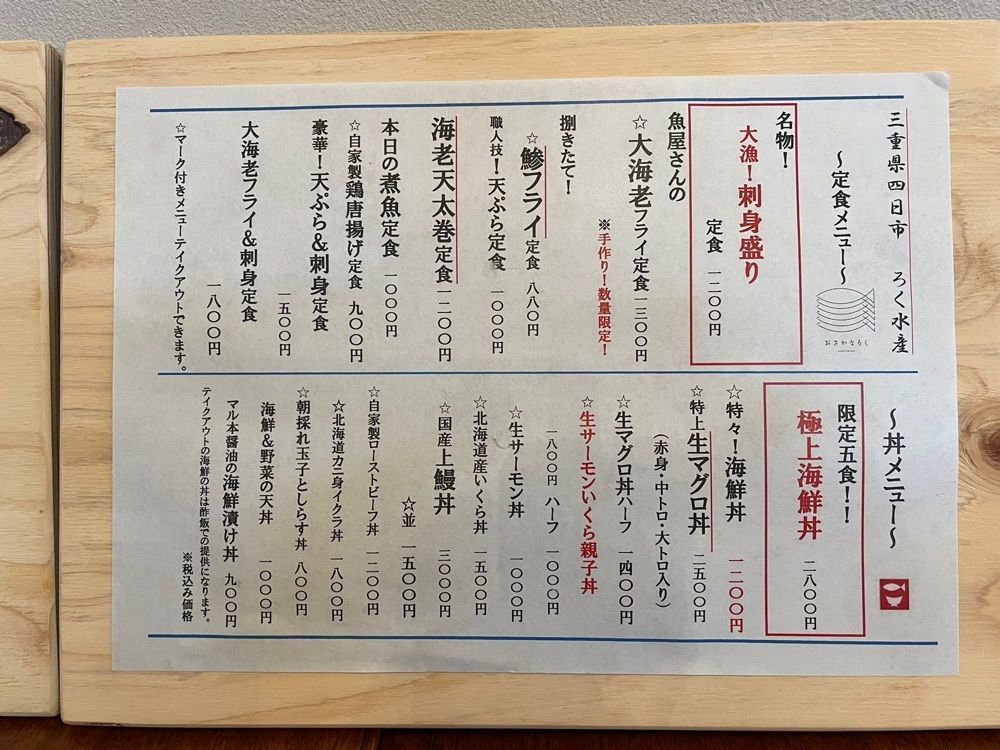 三重県四日市　ろく水産
～定食メニュー～
おさかなろく
名物！
大漁！刺身盛り
定食　一二〇〇円
魚屋さんの
☆大海老フライ定食一三〇〇円
※手作り！数量限定！
捌きたて！
☆鯵フライ定食　八八〇円
職人技！天ぷら定食　一〇〇〇円
海老天太巻定食一二〇〇円
本日の煮魚定食　一〇〇〇円
☆自家製鶏唐揚げ定食　九〇〇円
豪華！天ぷら＆刺身定食
一五〇〇円
大海老フライ＆刺身定食
一八〇〇円
☆マーク付きメニューテイクアウトできます。
～丼メニュー～
限定五食！！
極上海鮮丼　二八〇〇円
☆特々！海鮮丼　一二〇〇円
☆特上生マグロ丼　二五〇〇円
（赤身・中トロ・大トロ入り）
☆生マグロ丼ハーフ　一四〇〇円
☆生サーモンいくら親子丼
一八〇〇円　ハーフ　一〇〇〇円
☆生サーモン丼　一〇〇〇円
☆北海道産いくら丼　一五〇〇円
☆国産上鰻丼　三〇〇〇円
☆並　一五〇〇円
☆自家製ローストビーフ丼　一二〇〇円
☆北海道カニ身イクラ丼　一八〇〇円
☆朝採れ玉子としらす丼　八〇〇円
海鮮＆野菜の天丼　一〇〇〇円
マル本醤油の海鮮漬け丼　九〇〇円
テイクアウトの海鮮の丼は酢飯での提供になります。
※税込み価格